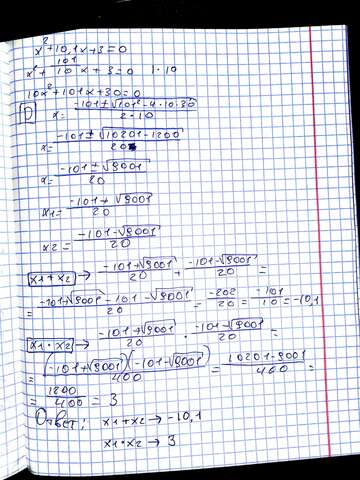 x² + 10,1x + 3 = 0
x² + 101/10 x + 3 = 0 | · 10
10x² + 101x + 30 = 0
D x = (-101 ± √(101² - 4·10·30)) / (2·10)
x = (-101 ± √(10201 - 1200)) / 20
x = (-101 ± √9001) / 20
x1 = (-101 + √9001) / 20
x2 = (-101 - √9001) / 20
x1 + x2 → (-101 + √9001)/20 + (-101 - √9001)/20 =
= (-101 + √9001 - 101 - √9001)/20 = -202/20 = -101/10 = -10,1
x1 · x2 → (-101 + √9001)/20 · (-101 - √9001)/20 =
= (-101 + √9001)(-101 - √9001)/400 = (10201 - 9001)/400 =
= 1200/400 = 3
Ответ: x1 + x2 → -10,1
x1 · x2 → 3